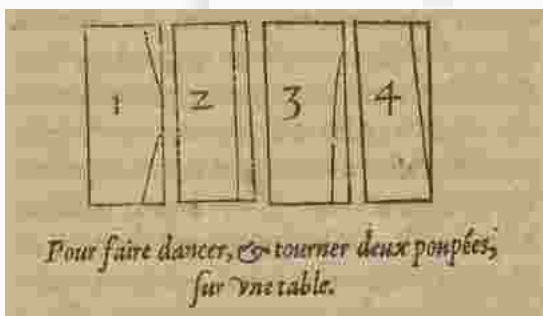 1 2 3 4
Pour faire dancer, & tourner deux poupées,
ſur vne table.